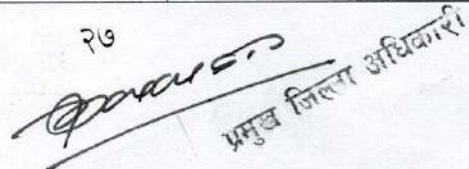 २७
प्रमुख जिल्ला अधिकारी